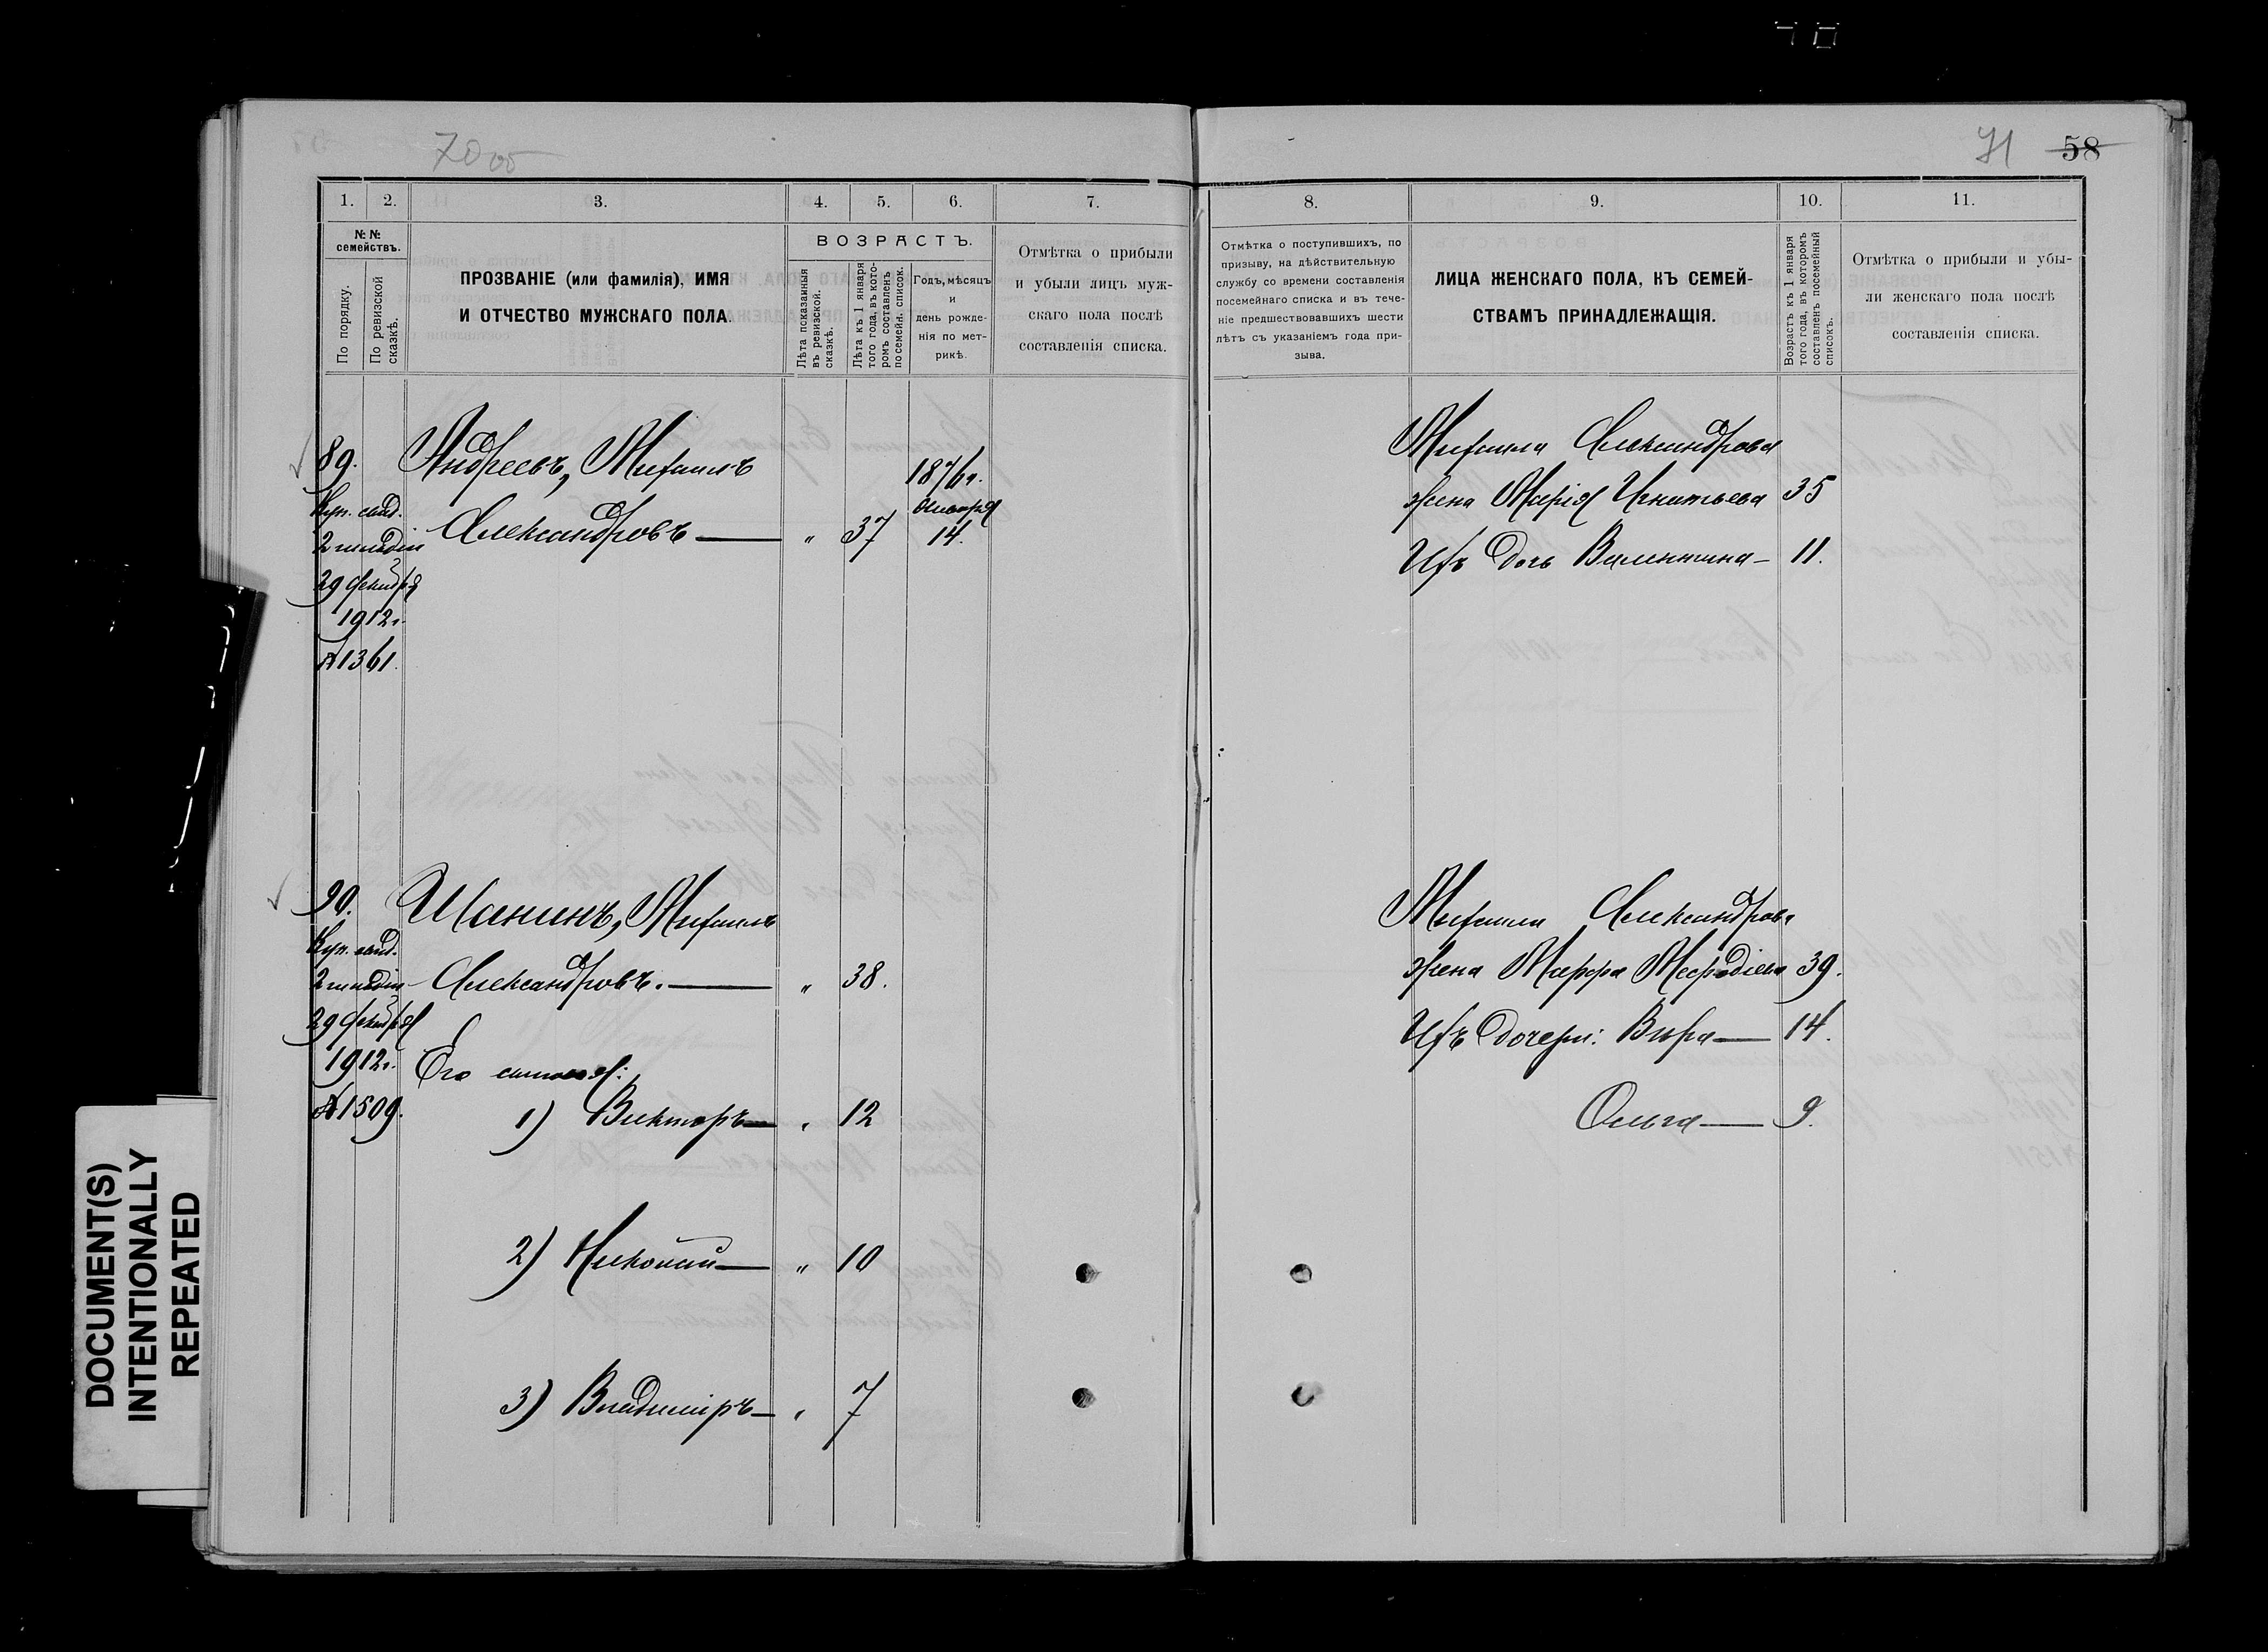 70 об
71 58
1. 2. 3. 4. 5. 6. 7.
№№ семействъ.
По порядку.
По ревизской сказкѣ.
ПРОЗВАНІЕ (или фамилія), ИМЯ
И ОТЧЕСТВО МУЖСКАГО ПОЛА.
ВОЗРАСТЪ.
Лѣта показанныя
въ ревизской.
сказкѣ.
Лѣта къ 1 января
того года, въ кото-
ромъ составленъ
посемейн. список.
Годъ, мѣсяцъ
и
день рожде-
нія по мет-
рикѣ.
Отмѣтка о прибыли
и убыли лицъ муж-
скаго пола послѣ
составленія списка.
89. Андреевъ, Михаилъ
1876 г.
Куп. свид.
2 гильдіи Александровъ — " 37
14.
29 Декабря
1912 г.
№ 1361.
90. Шанинъ, Михаилъ
Куп. свид.
2 гильдіи Александровъ. — " 38.
29 Декабря
1912 г. Его сыновья:
№ 1509.
1) Викторъ — " 12
2) Николай — " 10
3) Владиміръ — " 7
8. 9. 10. 11.
Отмѣтка о поступившихъ, по
призыву, на дѣйствительную
службу со времени составленія
посемейнаго списка и въ тече-
ніе предшествовавшихъ шести
лѣтъ съ указаніемъ года при-
зыва.
ЛИЦА ЖЕНСКАГО ПОЛА, КЪ СЕМЕЙ-
СТВАМЪ ПРИНАДЛЕЖАЩІЯ.
Возрастъ къ 1 января
того года, въ которомъ
составленъ посемейный
списокъ.
Отмѣтка о прибыли и убы-
ли женскаго пола послѣ
составленія списка.
Михаила Александрова
жена Марія Игнатьева 35
Ихъ дочь Валентина — 11.
Михаила Александрова
жена Марфа Мефодіева 39.
Ихъ дочери: Вѣра — 14.
Ольга — 9.
DOCUMENT(S)
INTENTIONALLY
REPEATED